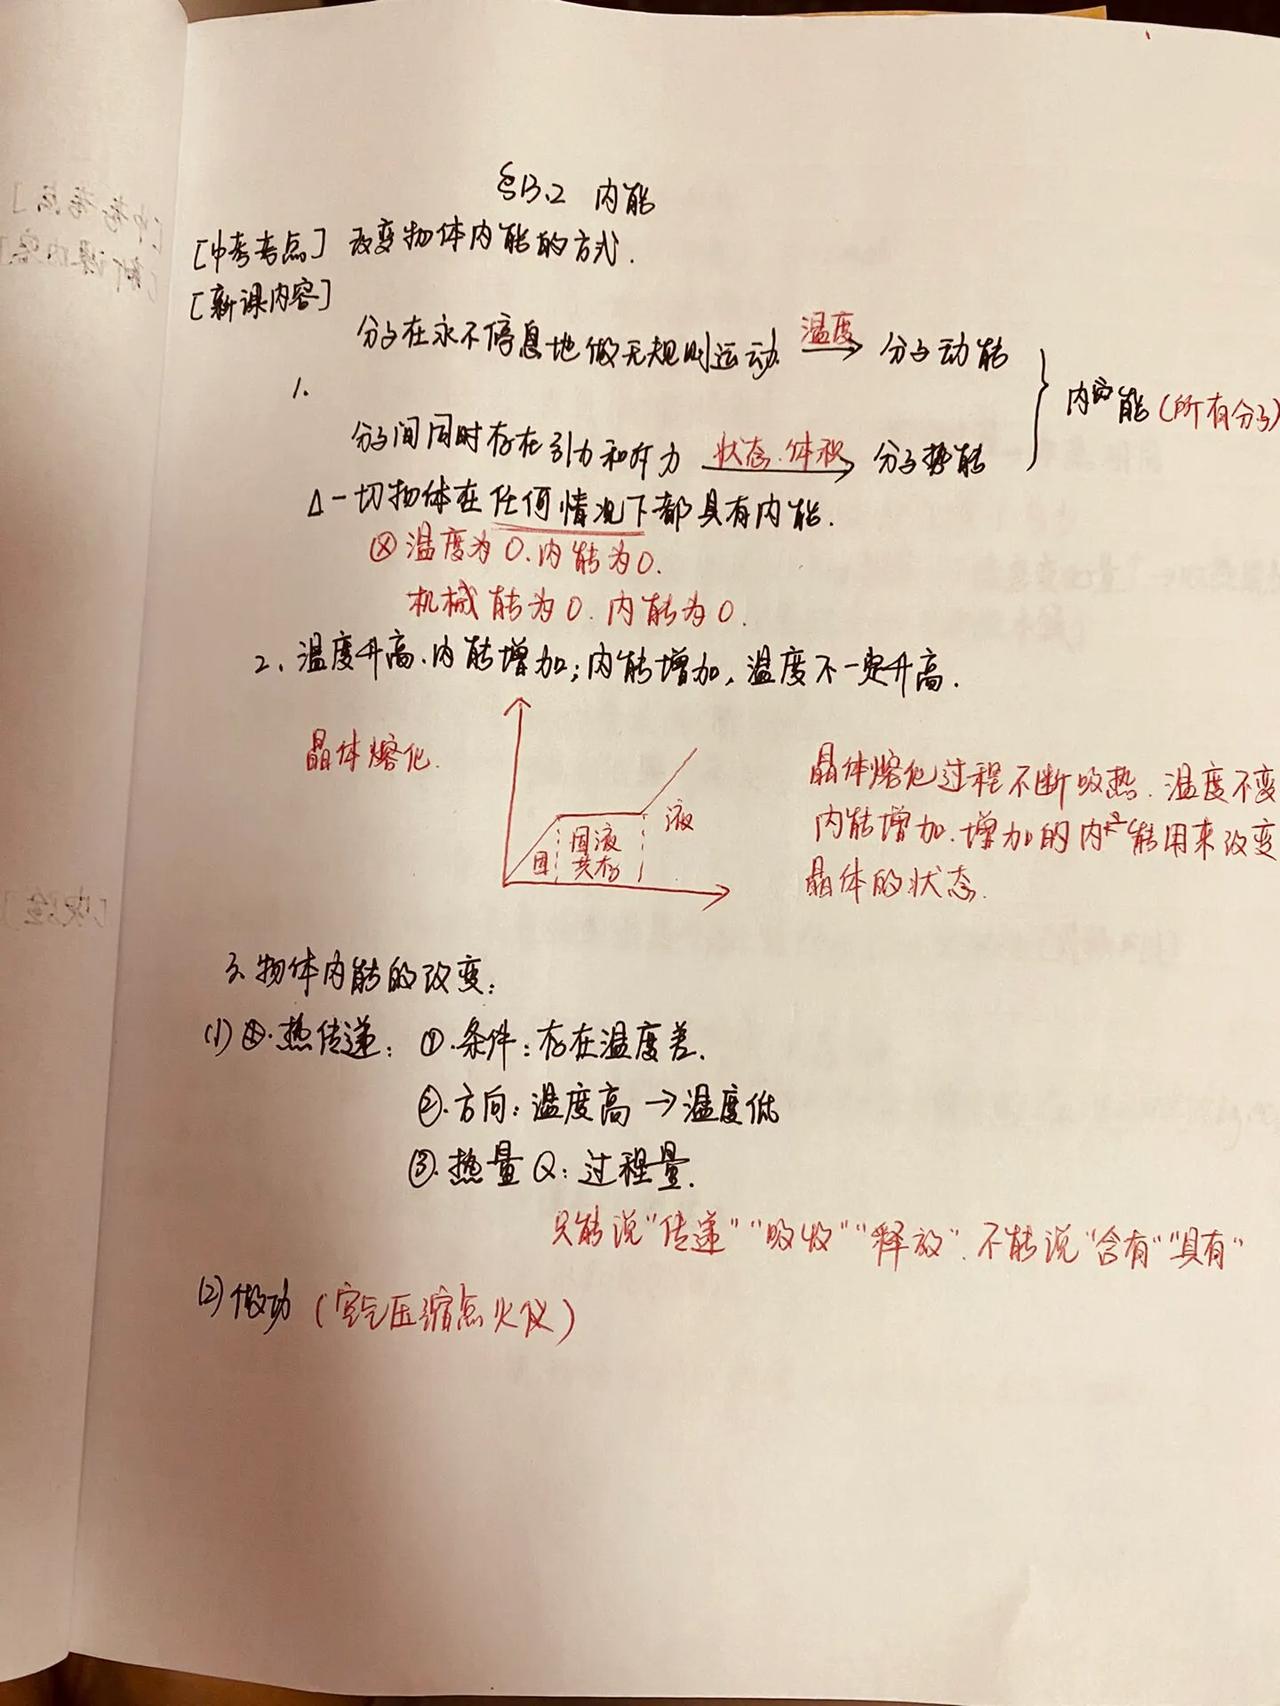 §13.2 内能
[中考考点] 改变物体内能的方式.
[新课内容]
分子在永不停息地做无规则运动 温度 → 分子动能
1.
内能(所有分子)
分子间同时存在引力和斥力 状态.体积 → 分子势能
Δ一切物体在任何情况下都具有内能.
⊗温度为0.内能为0.
机械能为0.内能为0.
2.温度升高.内能增加;内能增加,温度不一定升高.
晶体熔化.
固
固液
共存
液
晶体熔化过程不断吸热.温度不变
内能增加.增加的内能用来改变
晶体的状态.
3.物体内能的改变:
(1)热传递: ①.条件:存在温度差.
②.方向:温度高→温度低
③.热量Q:过程量.
只能说"传递""吸收""释放".不能说"含有""具有"
(2)做功(空气压缩点火仪)